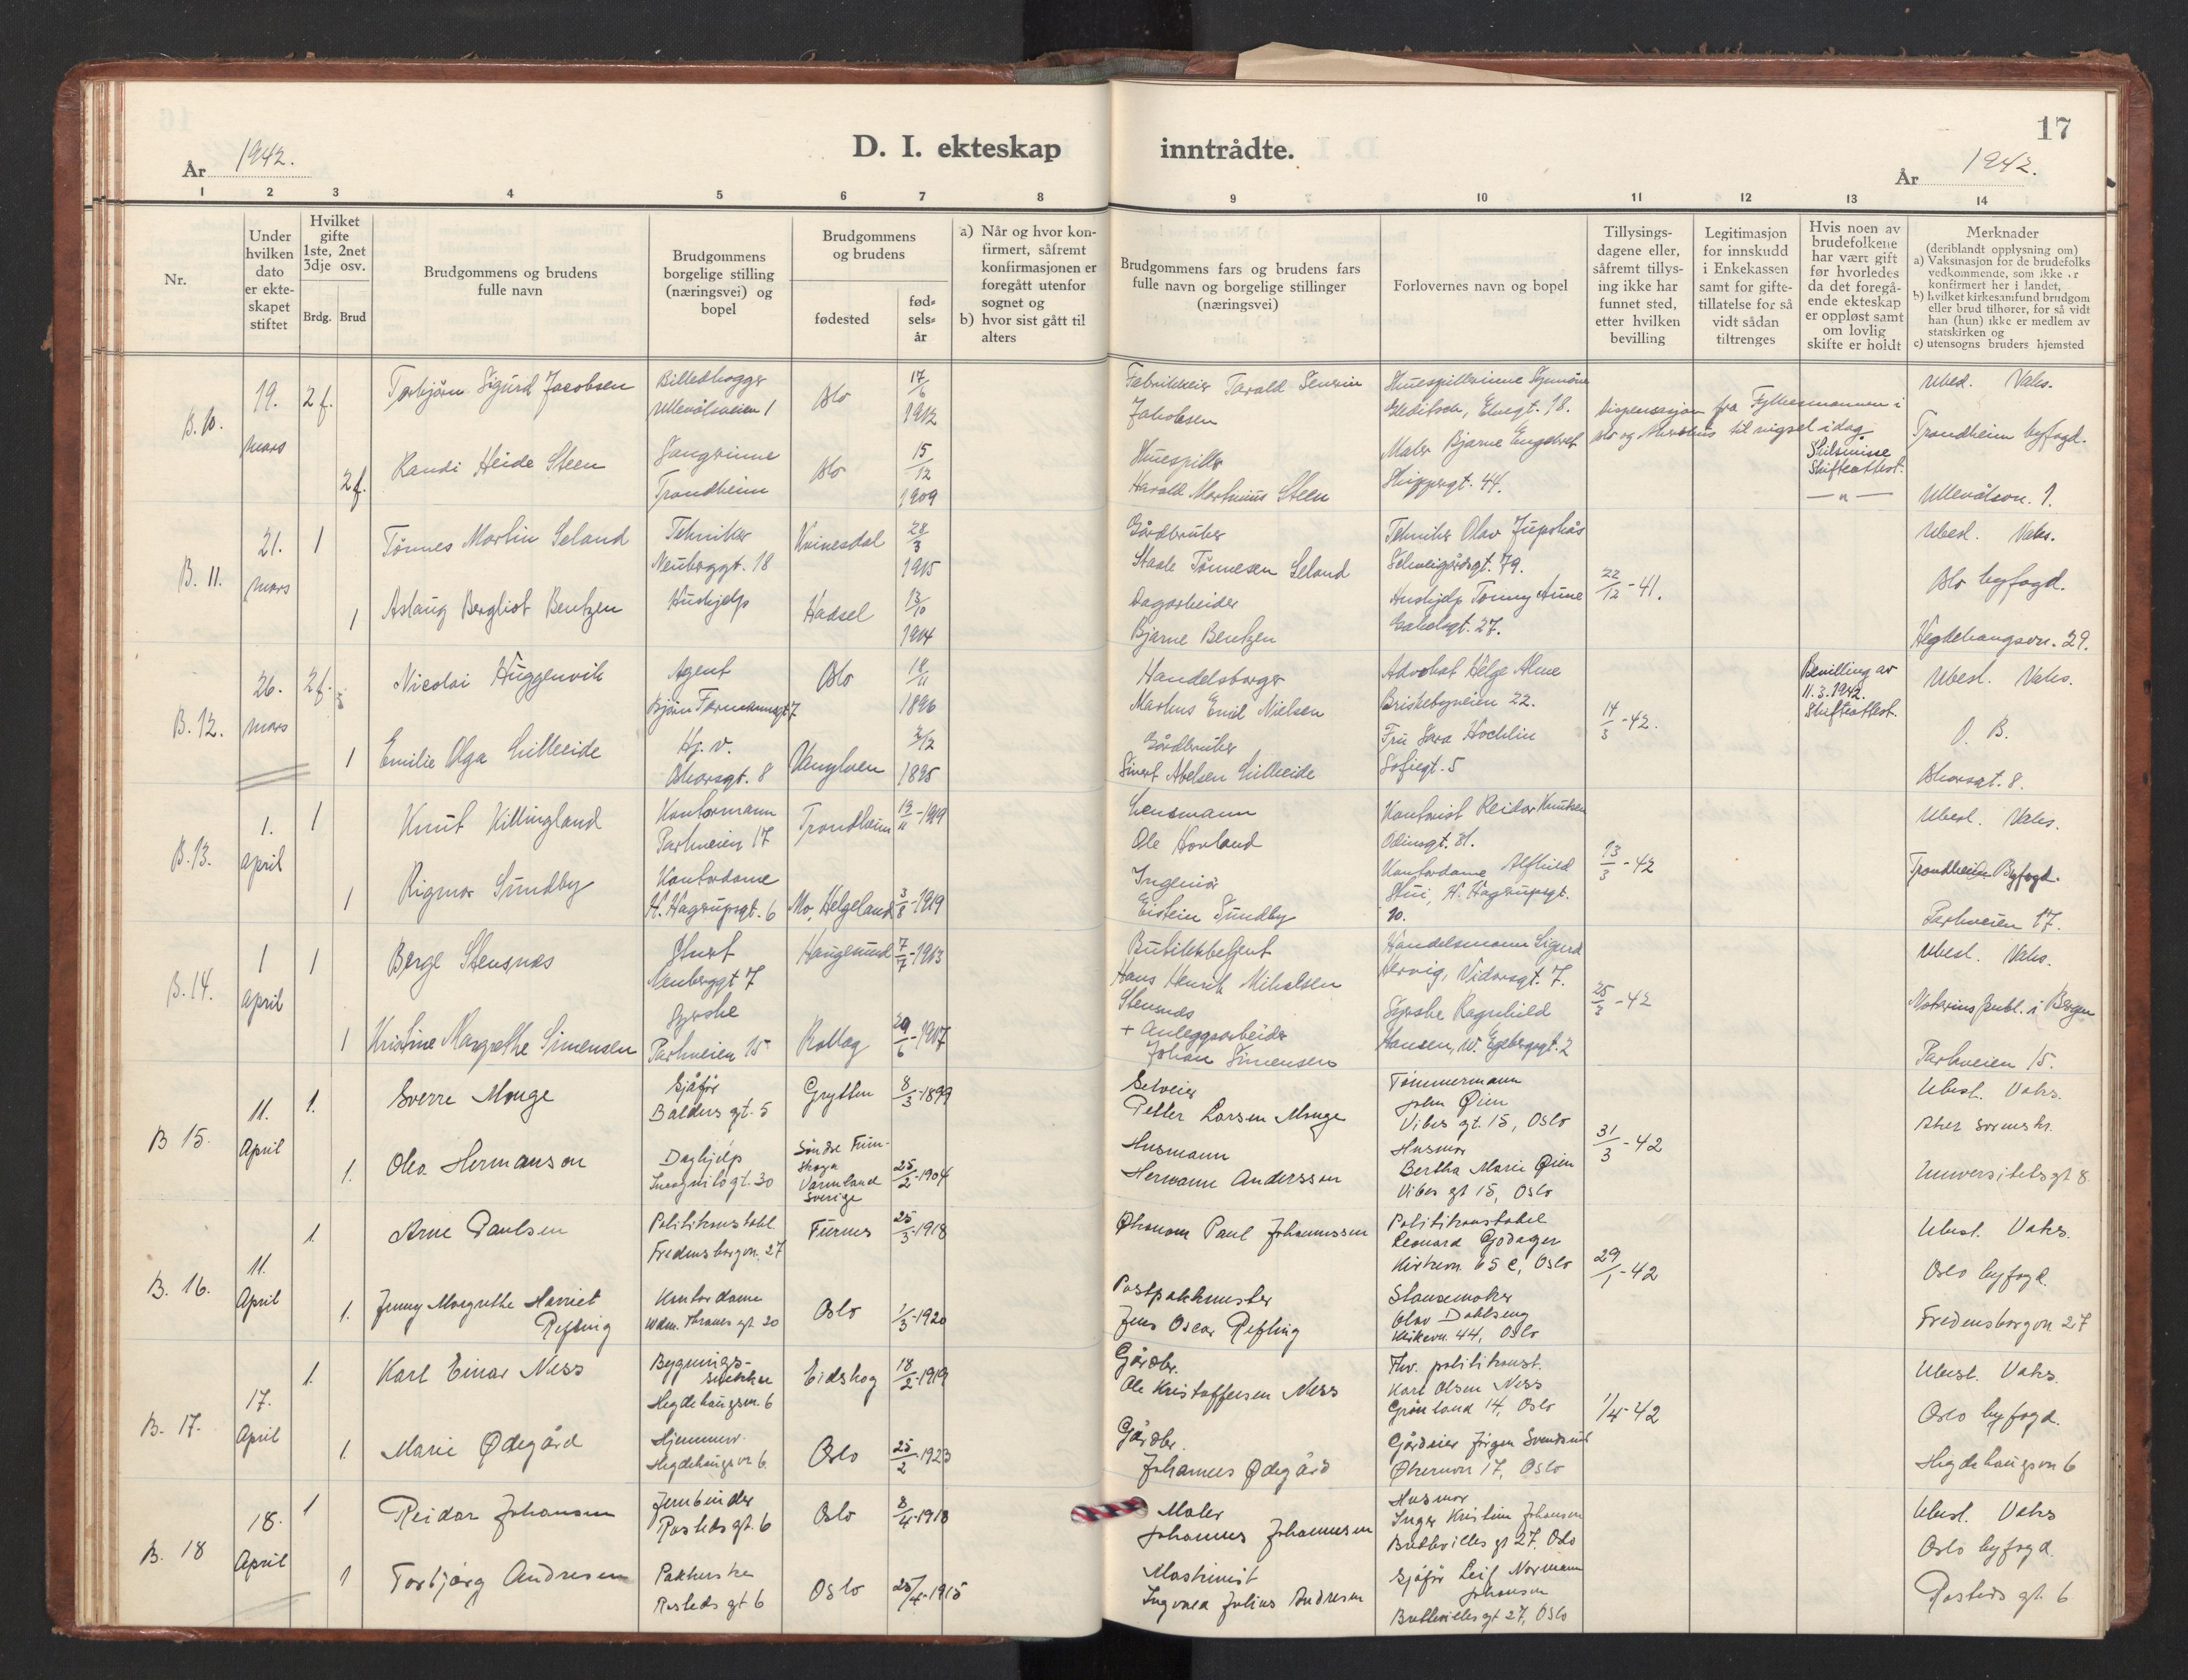 År 1942.
D. I. ekteskap inntrådte.
17
År 1942.
1 2 3 4 5 6 7 8 9 10 11 12 13 14
Nr.
Under hvilken dato er ekte-skapet stiftet
Hvilket gifte 1ste, 2net 3dje osv.
Brdg. Brud
Brudgommens og brudens fulle navn
Brudgommens borgelige stilling (næringsvei) og bopel
Brudgommens og brudens
fødested
fød-sels-år
a) Når og hvor kon-firmert, såfremt konfirmasjonen er foregått utenfor sognet og
b) hvor sist gått til alters
Brudgommens fars og brudens fars fulle navn og borgelige stillinger (næringsvei)
Forlovernes navn og bopel
Tillysings-dagene eller, såfremt tillys-ing ikke har funnet sted, etter hvilken bevilling
Legitimasjon for innskudd i Enkekassen samt for gifte-tillatelse for så vidt sådan tiltrenges
Hvis noen av brudefolkene har vært gift før hvorledes da det foregå-ende ekteskap er oppløst samt om lovlig skifte er holdt
Merknader
(deriblandt opplysning om)
a) Vaksinasjon for de brudefolks vedkommende, som ikke er konfirmert her i landet,
b) hvilket kirkesamfund brudgom eller brud tilhører, for så vidt han (hun) ikke er medlem av statskirken og
c) utensogns bruders hjemsted
B. 10.
19. mars
2 f.
Torbjørn Sigurd Jacobsen
Billedhogger
Ullevålsveien 1
Oslo
17/6 1912
Fabrikkeier Tarald
Jakobsen
Elvegt. 18.
Dispensasjon fra Fylkesmannen i
Oslo og Akershus til vigsel idag
Ubesl. Vaks.
Trondheim byfogd.
2 f.
Randi Heide Steen
Sangerinne
Trondheim
Oslo
15/12 1909
Skuespiller
Harald Steen
Maler Bjarne Engebret
Skippergt. 44.
Skilsmisse
Skifteattest.
— " —
Ullevålsvn. 1.
B. 11.
21. mars
1
Tönnes Martin Seland
Tekniker
Neuberggt. 18
Kvinesdal
28/3 1915
Gårdbruker
Staale Tönnesen Seland
Tekniker Olav
Schweigårdsgt. 79.
22/12 - 41.
Ubesl. Vaks.
Oslo byfogd.
1
Aslaug Bergliot Bentzen
Hushjelp
Hadsel
13/10 1904
Dagarbeider
Bjarne Bentzen
Hushjelp Tonny Aune
Gabelsgt. 27.
Hegdehaugsvn. 29.
B. 12.
26. mars
2 f.
Nicolai Huggenvik
Agent
Bjørn Farmannsgt 7
Oslo
18/11 1896
Handelsborger
Markus Emil Nielsen
Advokat Helge Alme
Briskebyveien 22.
14/3 - 42.
Bevilling av
11.3.1942.
Skifteattest.
Ubesl. Vaks.
O. B.
1
Emilie Olga Lilleeide
Hj. v.
Oskarsgt. 8
Vanylven
2/12 1895
Gårdbruker
Sivert Abelsen Lilleeide
Fru Sara Hocklin
Sofiegt. 5
Oskarsgt. 8.
B. 13.
1. april
1
Knut Killingland
Kontormann
Parkveien 17
Trondheim
13/11 - 1919
Lensmann
Ole Hovland
Kontorist Reidar Knutsen
Odinsgt. 31.
13/3 - 42
Ubesl. Vaks.
Trondheim Byfogd.
1
Rigmor Sundby
Kontordame
H. Hagerupsgt. 6
Mo, Helgeland
3/8 - 1919
Ingeniør
Eistein Sundby
Kontordame Alfhild
H. Hagerupsgt.
10.
Parkveien 17.
B. 14.
1 april
1
Berge Stensnes
Neuberggt 7
Haugesund
7/7 - 1913
Hans Henrik Mikalsen
Stensnes
Handelsmann Sigurd
Hervig, Vidarsgt. 7.
25/3 - 42
Ubesl. Vaks.
Notarius publ. i Bergen
1
Kristine Margrethe Simensen
Syerske
Parkveien 15
Rollag
29/6 - 1907
+ Anleggsarbeider
Johan Simensen
Syerske Ragnhild
Hansen, W. Egebergsgt. 2
Parkveien 15.
B 15.
11. April
1.
Sverre Monge
Sjåfør
Balders gt. 5
Grytten
8/3 - 1899
Selveier
Petter Larsen Monge
Tømmermann
John Øien
Vibes gt. 15, Oslo
31/3 - 42
Ubesl. Vaks.
Aker sorenskr.
1.
Olea Hermanson
Daghjelp
Incognitogt. 30
Søndre Finn-
skoga
Värmland
Sverige
25/2 - 1904
Husmann
Hermann Andersson
Husmor
Bertha Marie Øien
Vibes gt 15, Oslo
Universitetsgt 8.
B. 16.
11. April
1.
Arne Paulsen
Politikonstabl.
Fredensborgvn. 27
Furnes
25/3 - 1918
Økonom Paul Johannessen
Politikonstabel
Leonard Godager
Kirkevn. 65 c, Oslo
29/1 - 42
Ubesl. Vaks.
Oslo byfogd.
1.
Jenny Margrethe Harriet
Refling
Kontordame
Wdm. Thranes gt. 20
Oslo
1/3 - 1920
Postpakkmester
Jens Oscar Refling
Stansemaker
Olav Dahlseng
Kirkevn 44, Oslo
Fredensborgvn 27
B. 17.
17. April
1.
Karl Einar Ness
Bygnings-
snekker
Hegdehaugsvn. 6
Eidskog
18/2 - 1919
Gårdbr.
Ole Kristoffersen Ness
Fhv. politikonst.
Karl Olsen Ness
Grønland 14, Oslo
1/4 - 42
Ubesl. Vaks.
Oslo byfogd.
1.
Marie Ødegård
Hjemmev.
Hegdehaugsvn 6
Oslo
25/2 - 1923
Gårdbr.
Johannes Ødegård
Gårdeier Jørgen Svendsrud
Økernvn 17, Oslo
Hegdehaugsvn 6
B. 18
18. April
1
Reidar Johansen
Jernbinder
Rosteds gt. 6
Oslo
8/4 - 1913
Maler
Johannes Johannesen
Husmor
Inger Kristine Johansen
gt 27, Oslo
Ubesl. Vaks
Oslo byfogd.
1
Torbjørg Andresen
Pakkerske
Rosteds gt 6
Oslo
25/4 - 1915
Maskinist
Ingvald Julius Andresen
Sjåfør Leif Normann
Johansen
gt 27, Oslo
Rosteds gt. 6